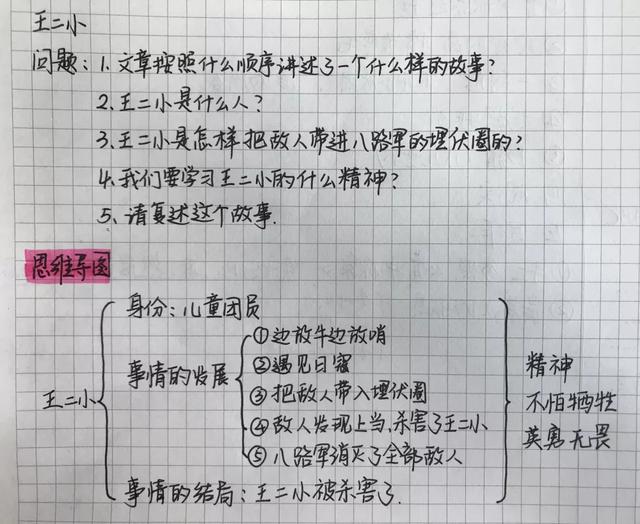 王二小
问题：1、文章按照什么顺序讲述了一个什么样的故事？
2、王二小是什么人？
3、王二小是怎样把敌人带进八路军的埋伏圈的？
4、我们要学习王二小的什么精神？
5、请复述这个故事.
思维导图
身份：儿童团员
①边放牛边放哨
事情的发展
②遇见日寇
精神
王二小
③把敌人带入埋伏圈
不怕牺牲
④敌人发现上当,杀害了王二小
英勇无畏
⑤八路军消灭了全部敌人
事情的结局：王二小被杀害了.